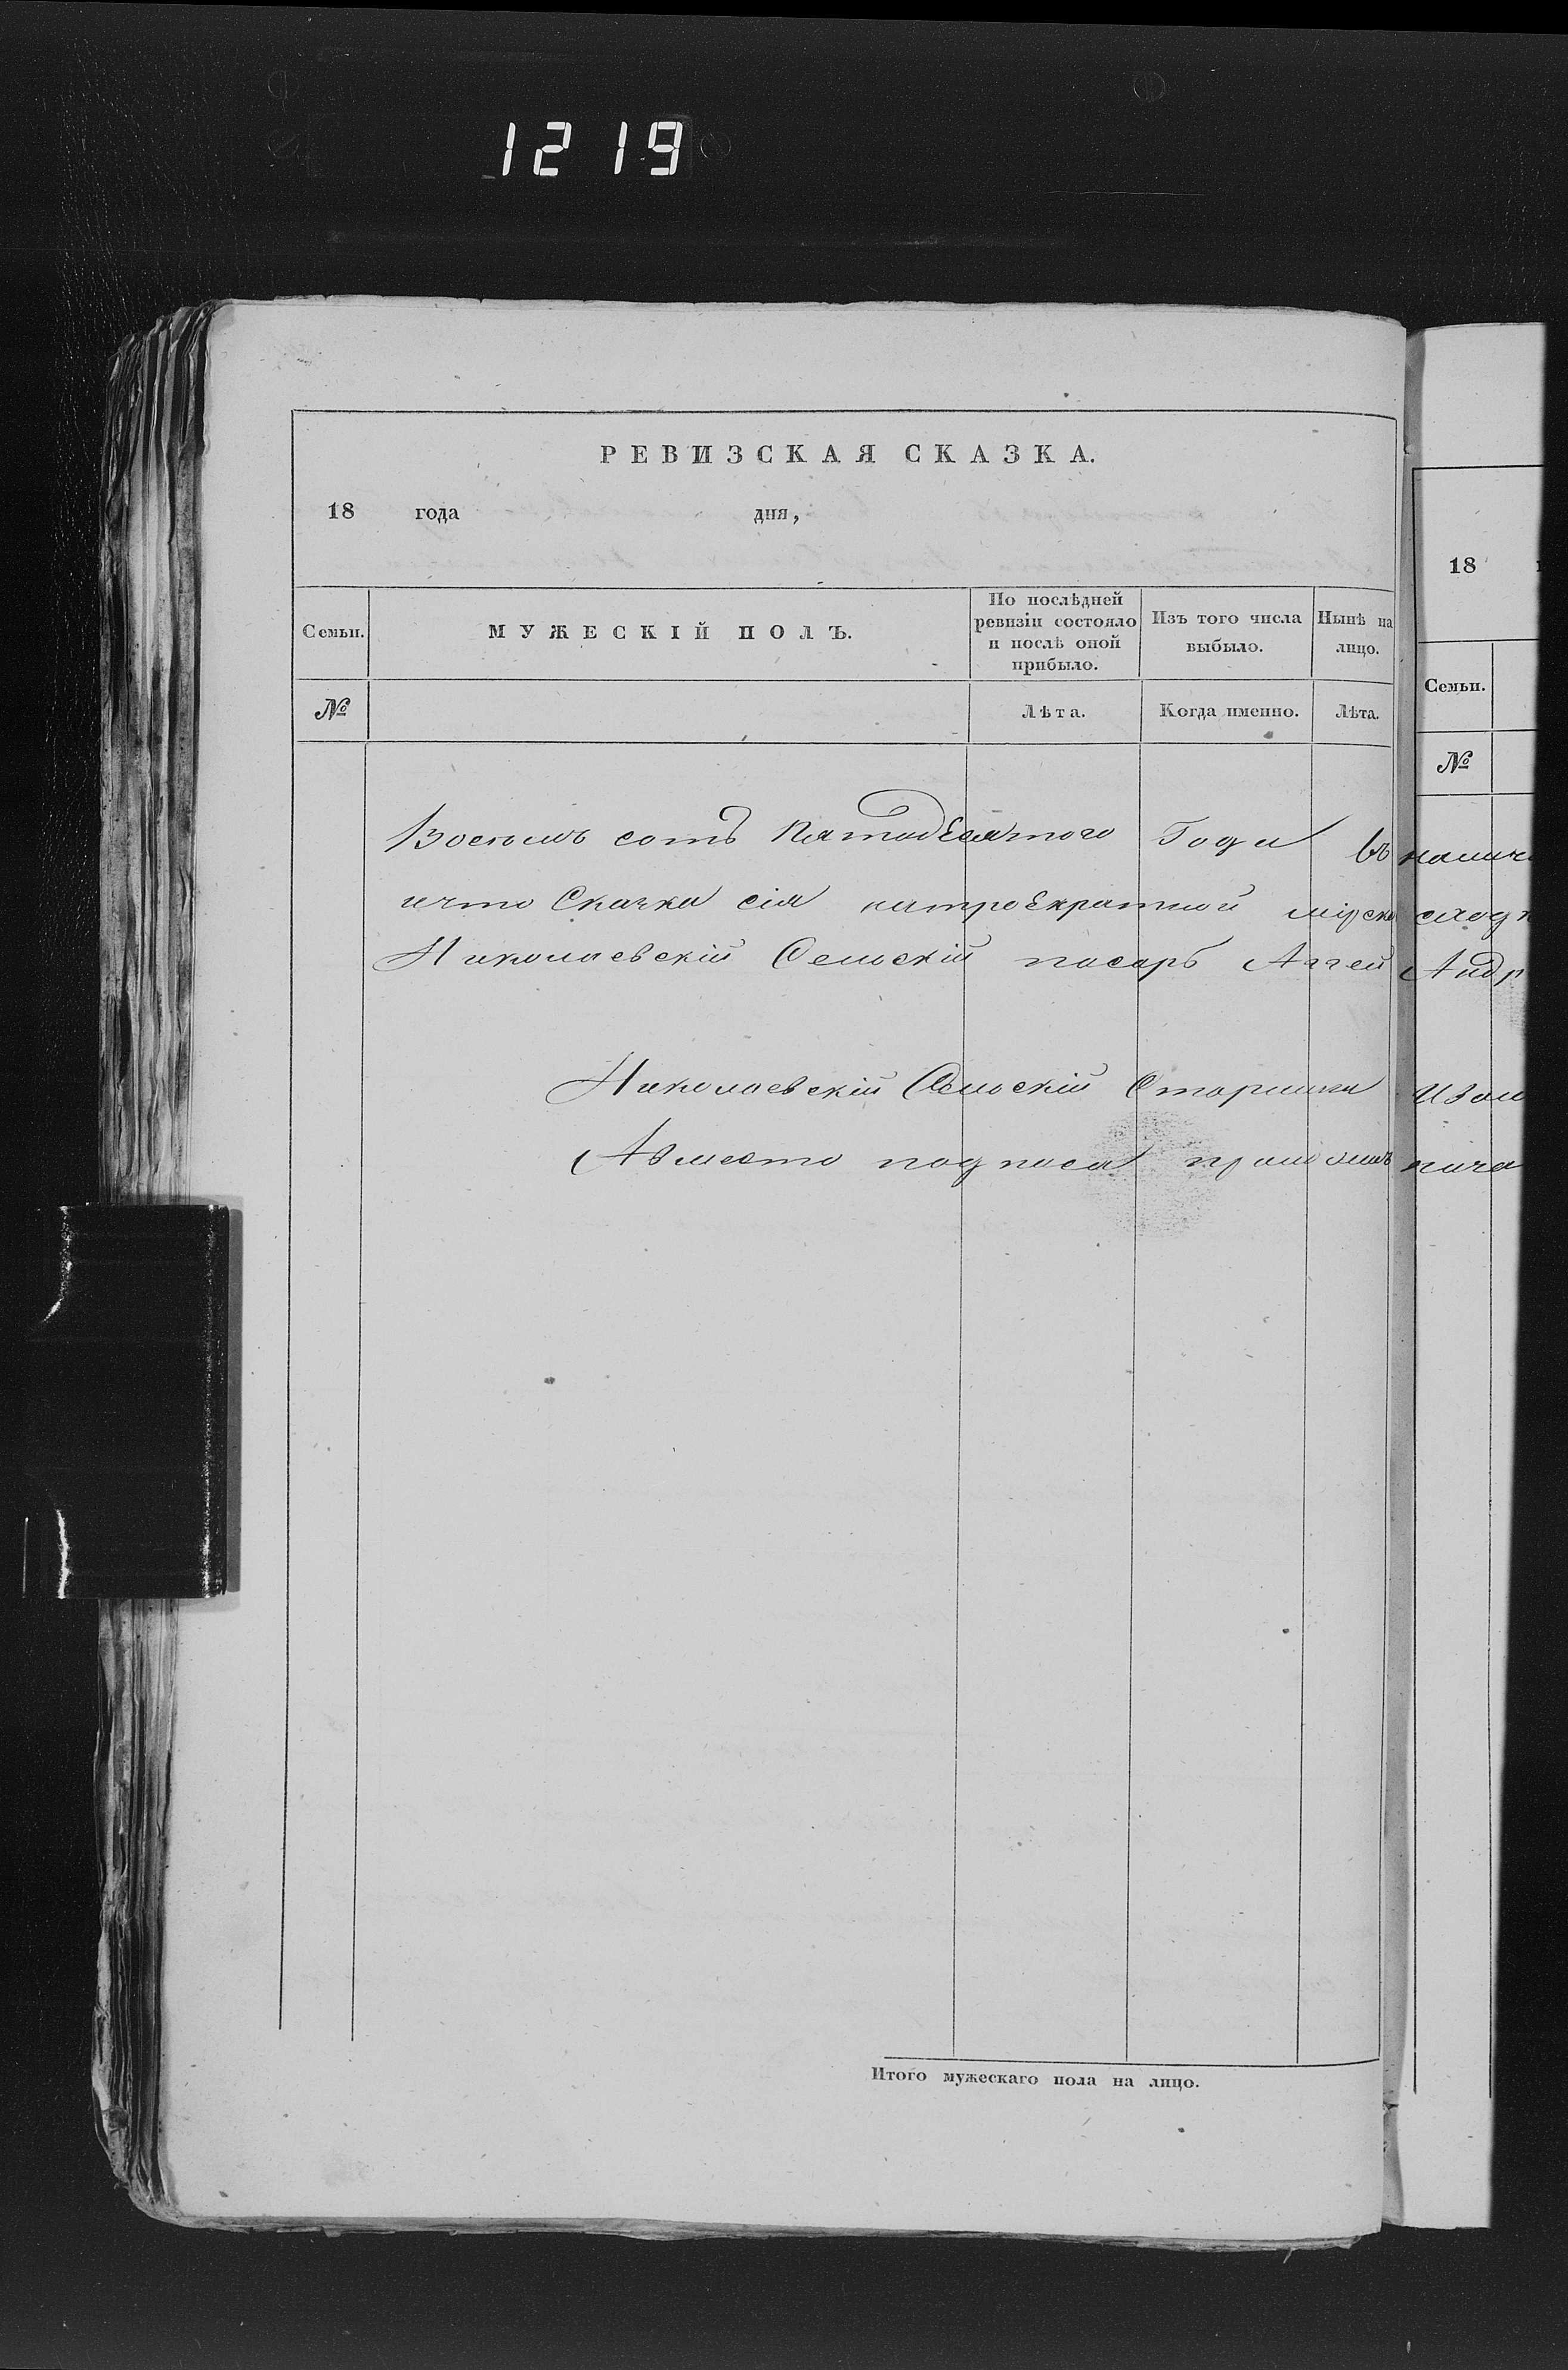 1219
РЕВИЗСКАЯ СКАЗКА.
18 года дня,
Семьи. МУЖЕСКІЙ ПОЛЪ. По послѣдней ревизіи состояло и послѣ оной прибыло. Изъ того числа выбыло. Нынѣ на лицо.
№ Лѣта. Когда именно. Лѣта.
Восемь сотъ Пятидесятого Года въ
ичто Сказка сія натроекратной мірско
Николаевскій Сельскій писарь Аггей
Николаевскій Сельскій Старшина
Авместо подписи приложилъ
Итого мужескаго пола на лицо.
18
Семьи.
№
налич
сходк
Андр
печа